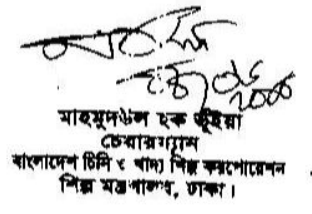 মাহমুদউল হক ভূঁইয়া
চেয়ারম্যান
বাংলাদেশ চিনি ও খাদ্য শিল্প করপোরেশন
শিল্প মন্ত্রণালয়, ঢাকা।